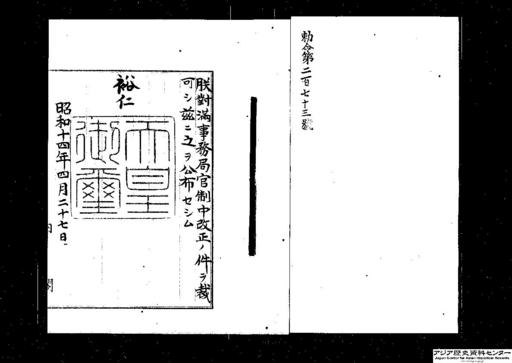 勅令第二百七十三號
朕對滿事務局官制中改正ノ件ヲ裁
可シ茲ニ之ヲ公布セシム
裕仁
天皇
御璽
昭和十四年四月二十七日
内閣
アジア歴史資料センター
Japan Center for Asian Historical Records